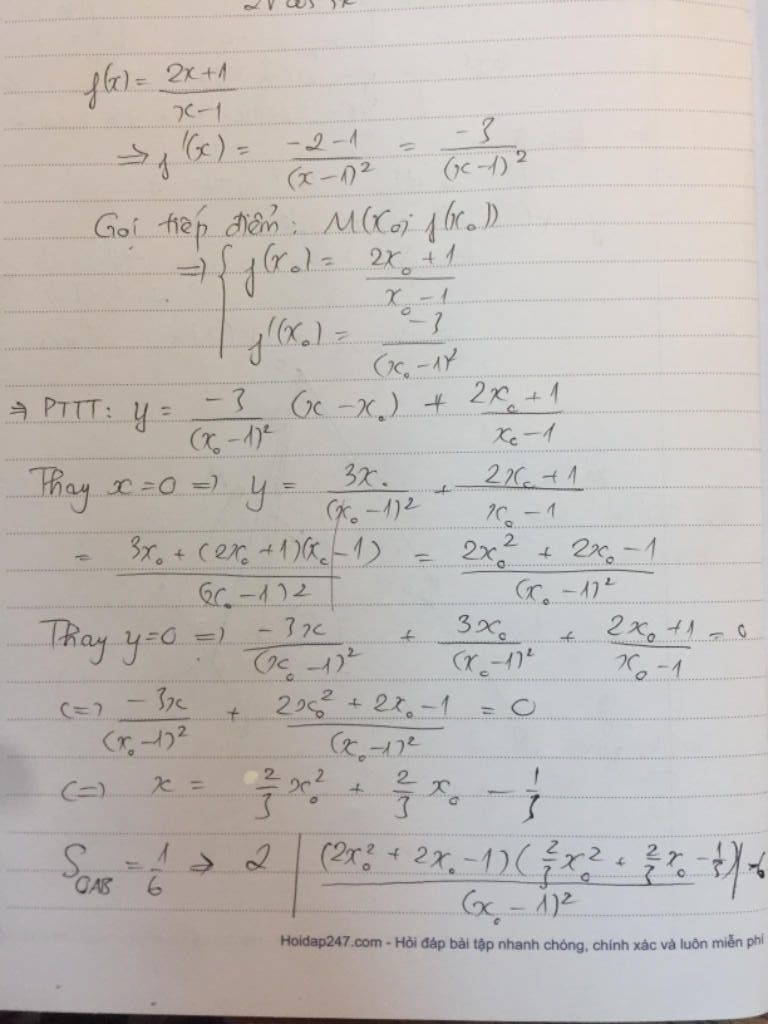 f(x) = \frac{2x+1}{x-1}
=> f'(x) = \frac{-2-1}{(x-1)^2} = \frac{-3}{(x-1)^2}
Gọi tiếp điểm: M(x_0; f(x_0))
=> { f(x_0) = \frac{2x_0+1}{x_0-1}
f'(x_0) = \frac{-3}{(x_0-1)^2}
=> PTTT: y = \frac{-3}{(x_0-1)^2} (x-x_0) + \frac{2x_0+1}{x_0-1}
Thay x=0 => y = \frac{3x_0}{(x_0-1)^2} + \frac{2x_0+1}{x_0-1}
= \frac{3x_0+(2x_0+1)(x_0-1)}{(x_0-1)2} = \frac{2x_0^2+2x_0-1}{(x_0-1)^2}
Thay y=0 => \frac{-3x}{(x_0-1)^2} + \frac{3x_0}{(x_0-1)^2} + \frac{2x_0+1}{x_0-1} = 0
<=> \frac{-3x}{(x_0-1)^2} + \frac{2x_0^2+2x_0-1}{(x_0-1)^2} = 0
<=> x = \frac{2}{3}x_0^2 + \frac{2}{3}x_0 - \frac{1}{3}
S_{OAB} = \frac{1}{6} => 2 |\frac{(2x_0^2+2x_0-1)(\frac{2}{3}x_0^2+\frac{2}{3}x_0-\frac{1}{3})}{(x_0-1)^2}|
Hoidap247.com - Hỏi đáp bài tập nhanh chóng, chính xác và luôn miễn phí